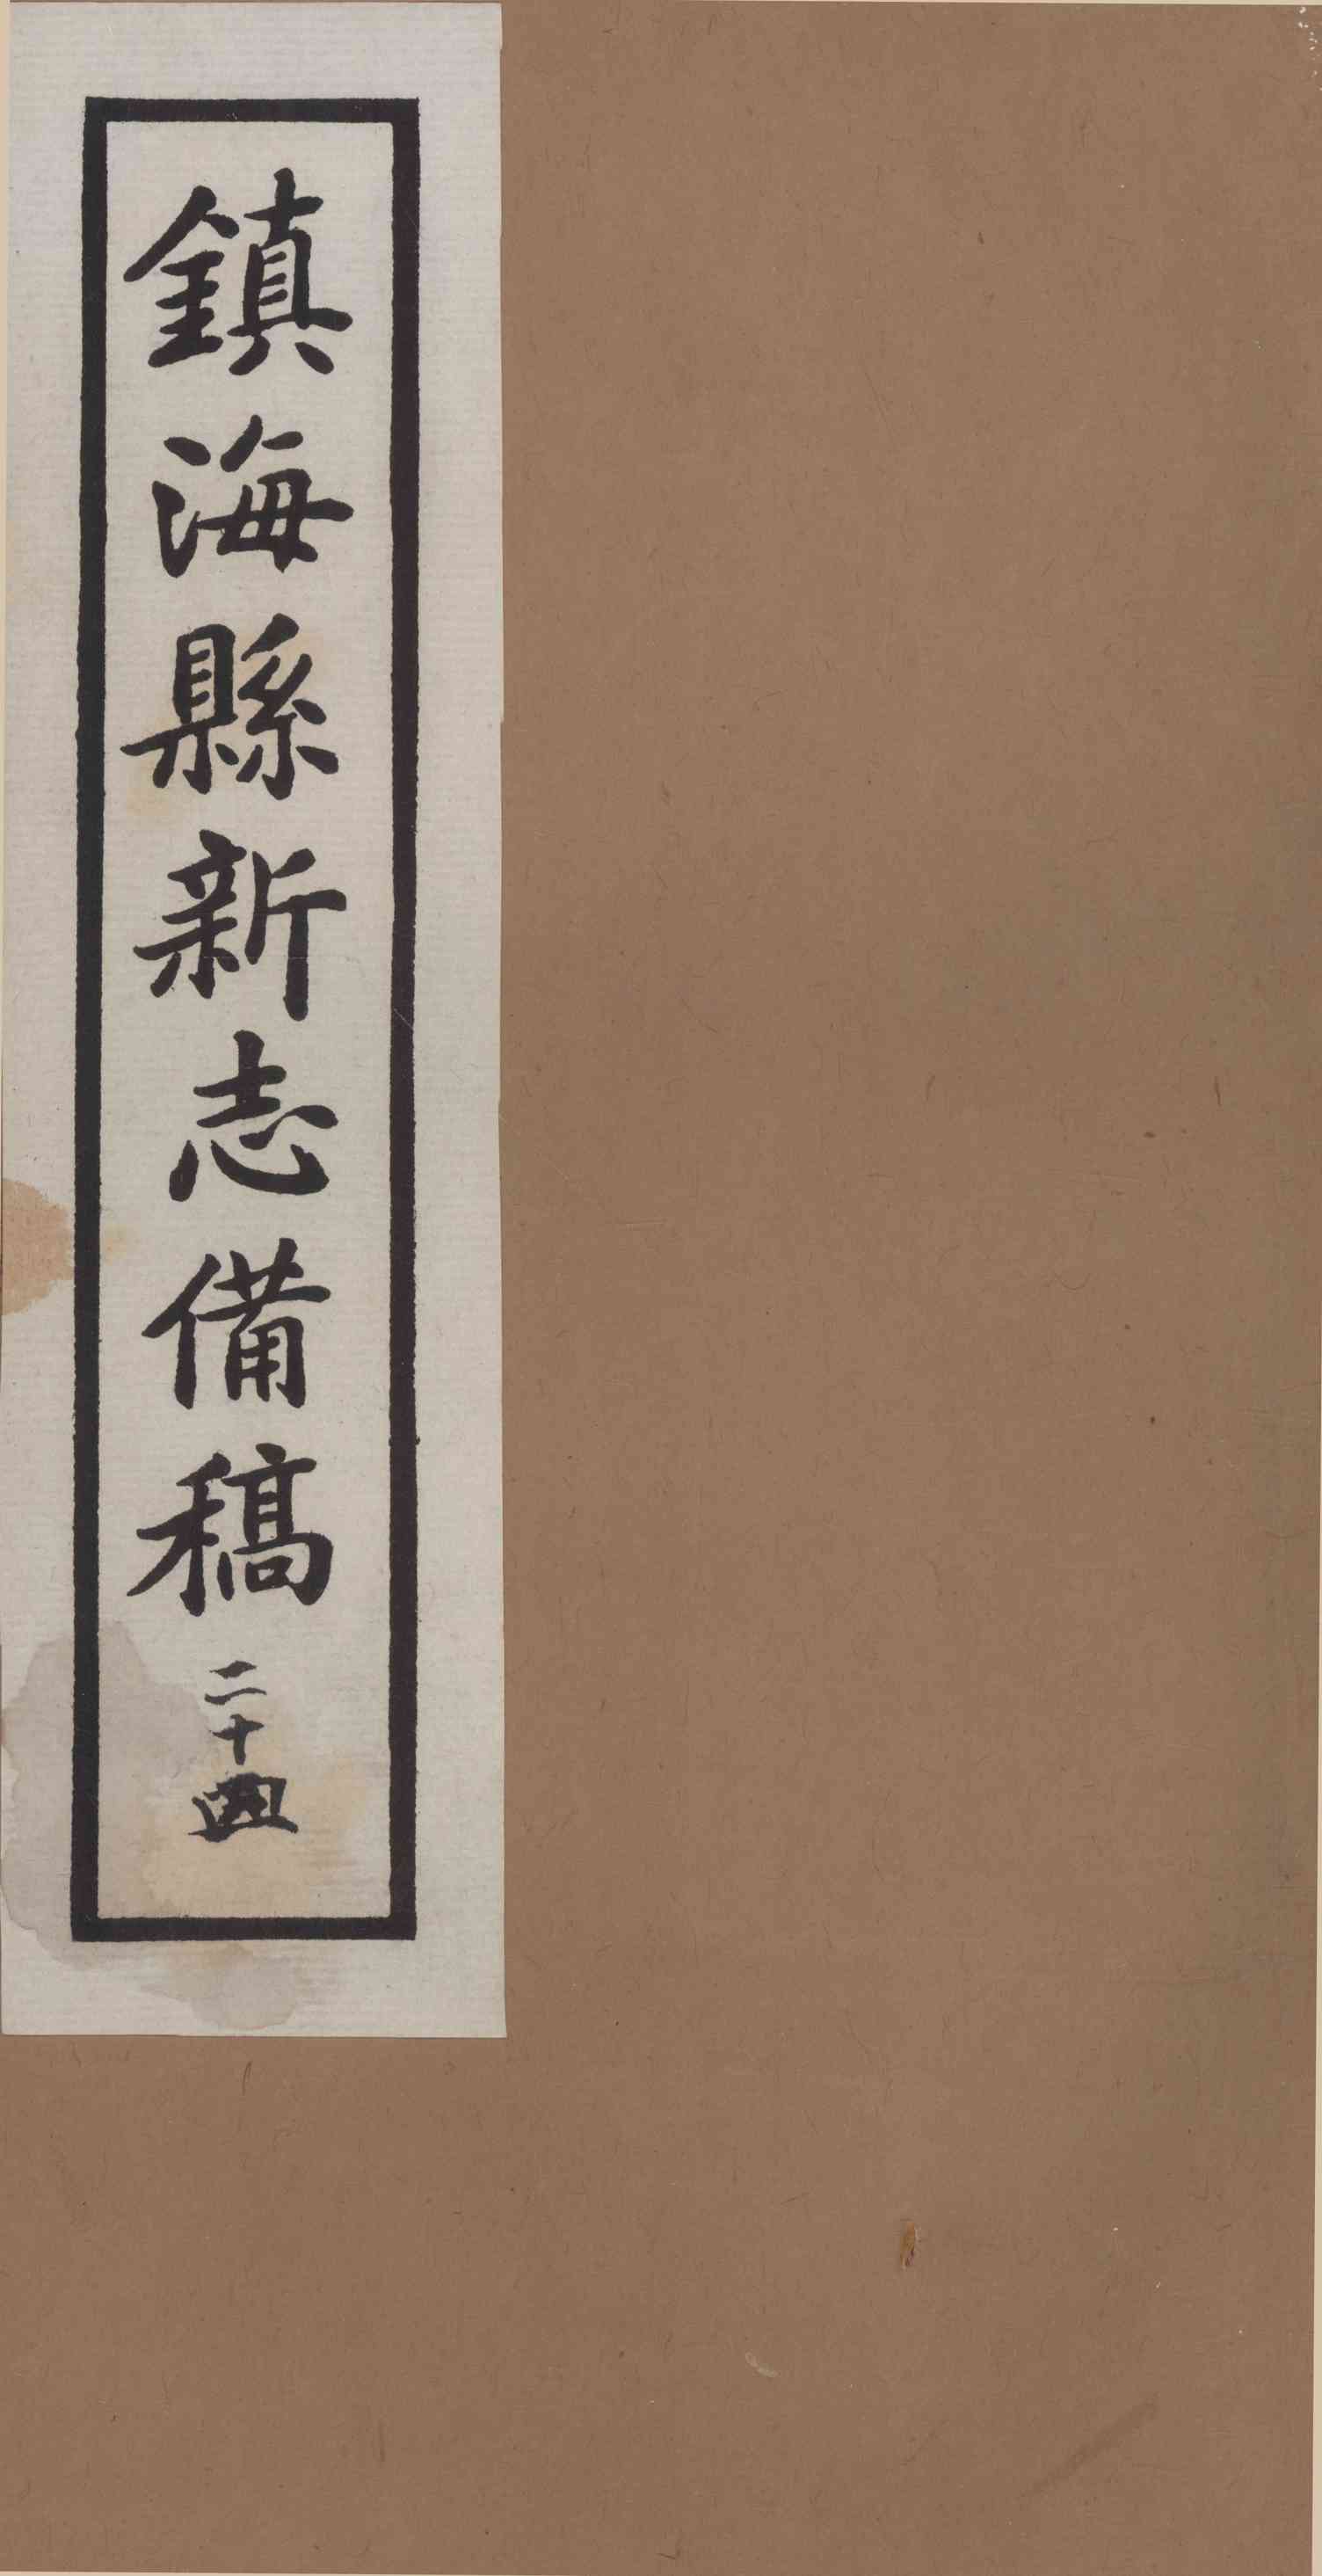 鎮海縣新志備稿
二十四